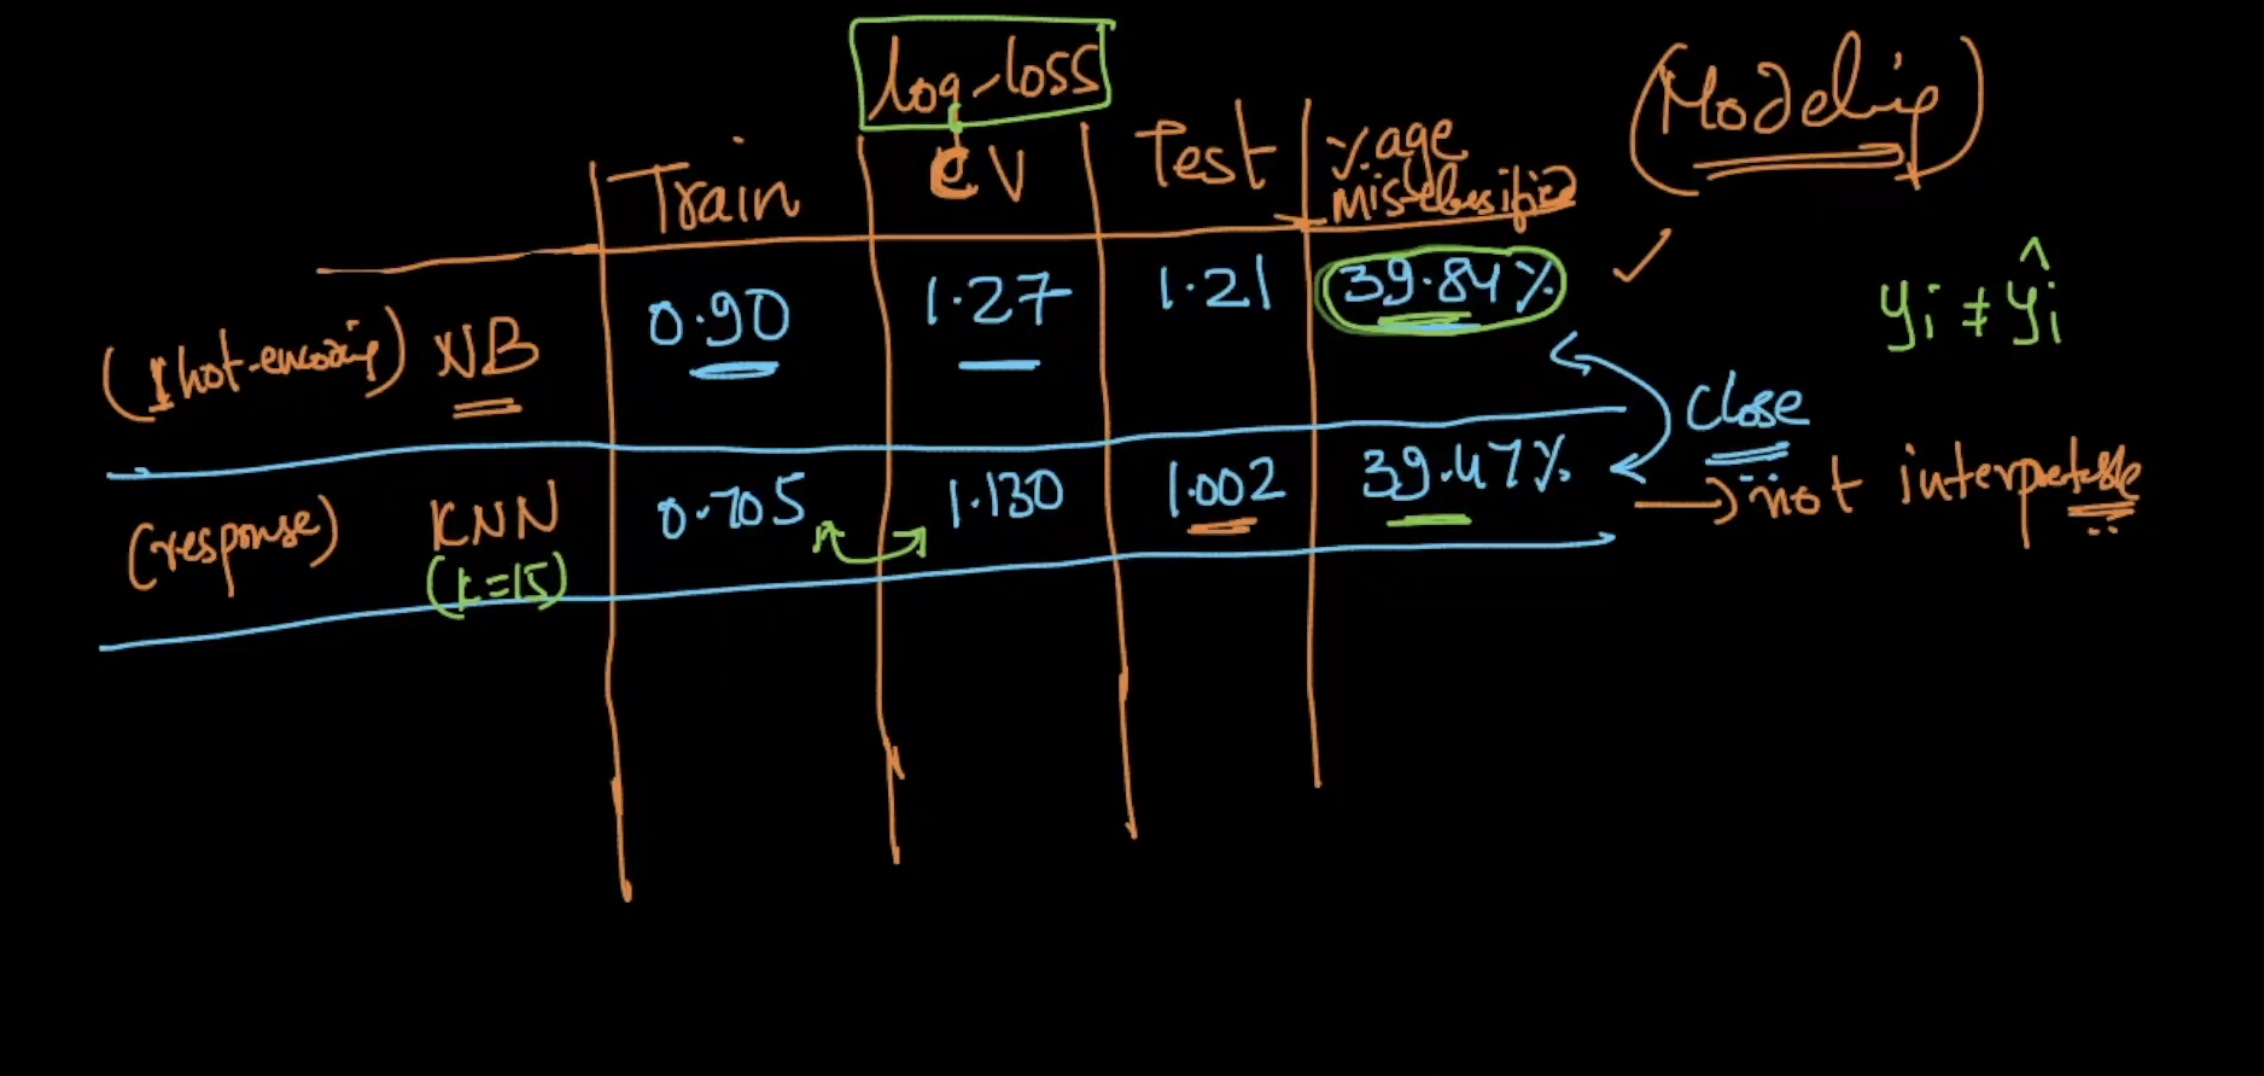 log-loss
(Modeling)
Train CV Test %age misclassified
(1hot-encoding) NB 0.90 1.27 1.21 39.84%
yi ≠ ŷi
close
(response) KNN 0.705 1.130 1.002 39.47%
→ not interpretable
(k=15)